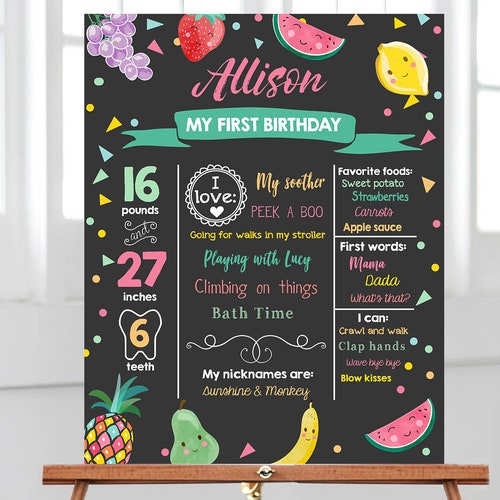 Allison
MY FIRST BIRTHDAY
16
pounds
and
27
inches
6
teeth
I
love:
My soother
PEEK A BOO
Going for walks in my stroller
Playing with Lucy
Climbing on things
Bath Time
My nicknames are:
Sunshine & Monkey
Favorite foods:
Sweet potato
Strawberries
Carrots
Apple sauce
First words:
Mama
Dada
What's that?
I can:
Crawl and walk
Clap hands
Wave bye bye
Blow kisses